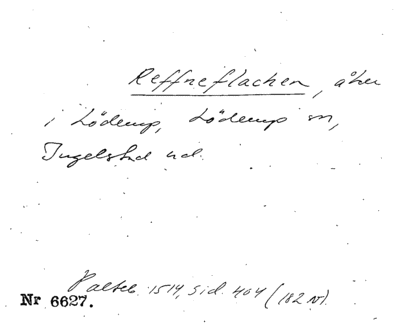 Reffneflachen, åker
i Löderup, Löderup sn,
Ingelstad hd.
Palteb. 1514, sid. 404 (182 v).
Nr 6627.